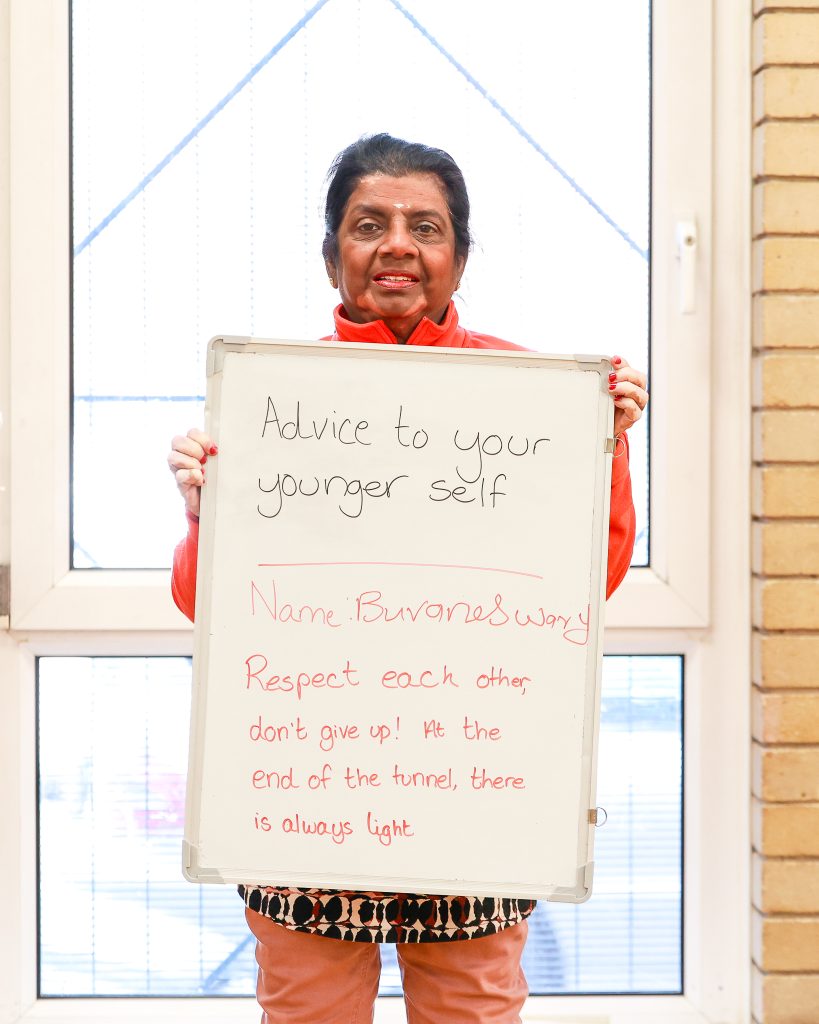 Advice to your
younger self
Name: Buvaneswary
Respect each other,
don't give up! At the
end of the tunnel, there
is always light